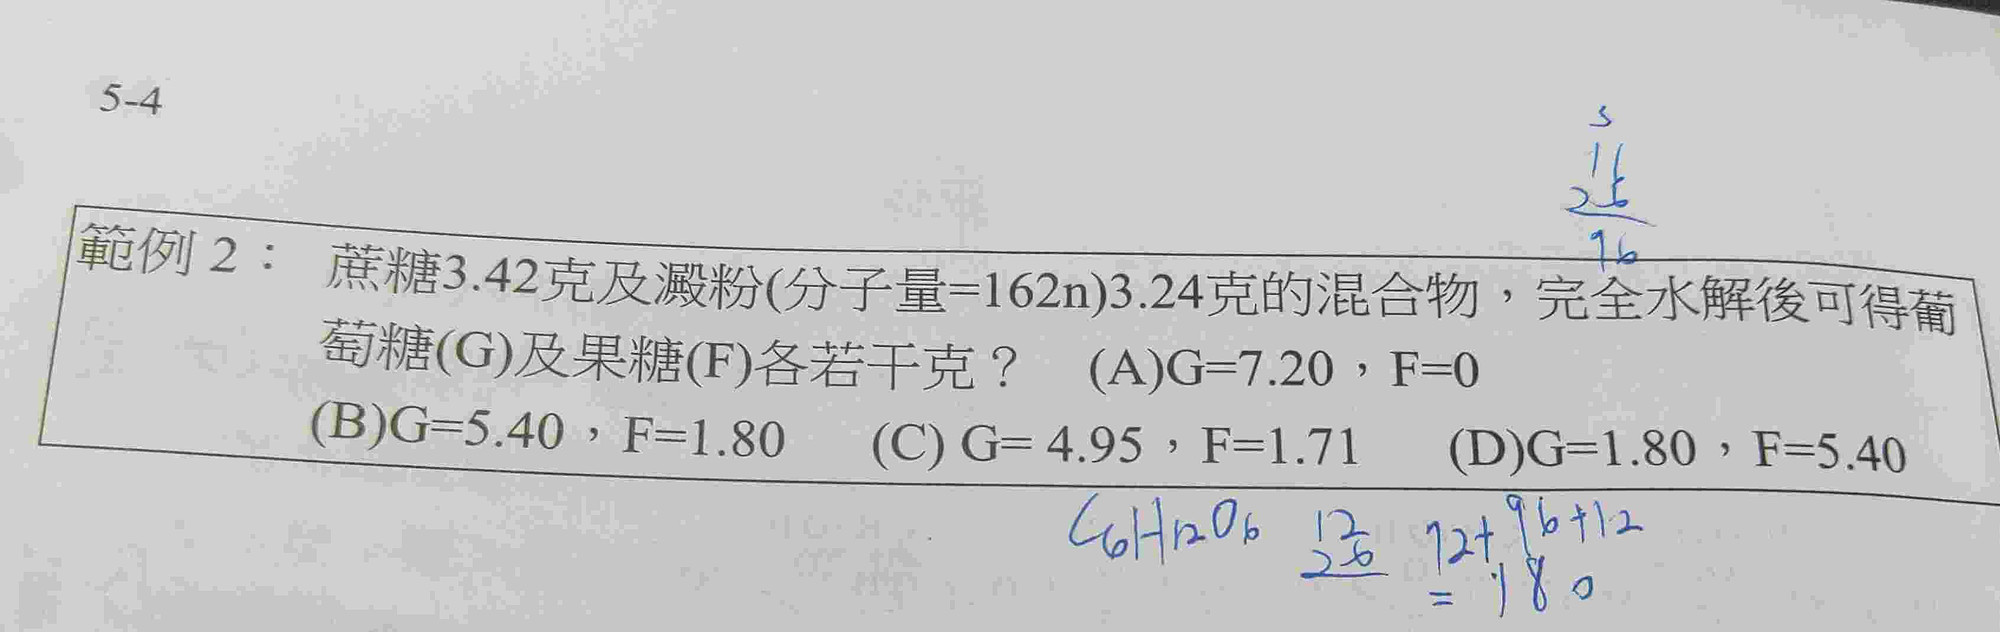 5-4
3
16
x 6
96
範例 2： 蔗糖3.42克及澱粉(分子量=162n)3.24克的混合物，完全水解後可得葡
萄糖(G)及果糖(F)各若干克？ (A)G=7.20，F=0
(B)G=5.40，F=1.80 (C) G= 4.95，F=1.71 (D)G=1.80，F=5.40
C6H12O6 12 72+96+12
x 6 = 180